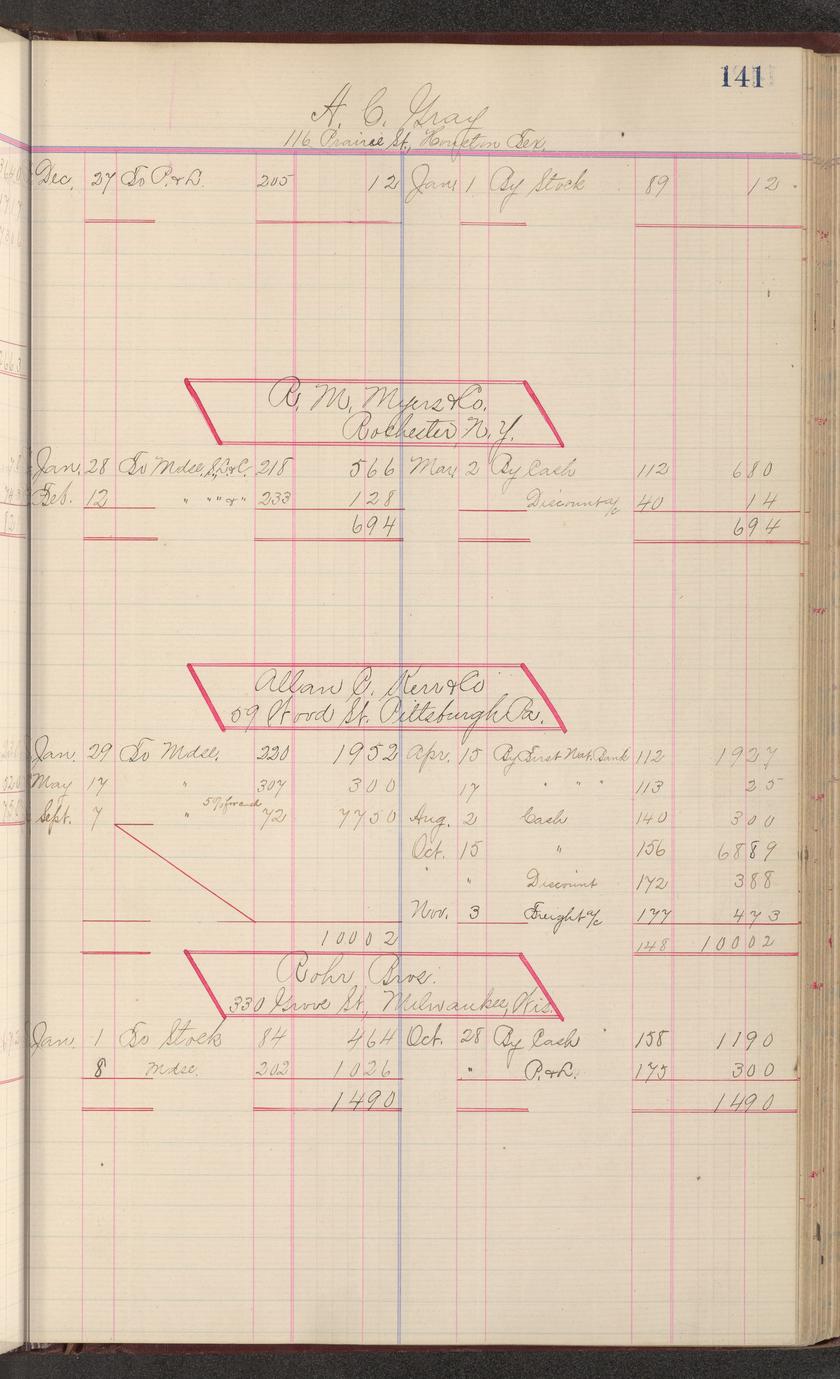 141
A. C. Gray
116 Prairie St., Houston Tex.
Dec. 27 To P. & L. 205 12 Jan. 1 By Stock 89 12
R. M. Myers & Co.
Rochester, N. Y.
Jan. 28 To Mdse. 218 566 Mar. 2 By Cash 112 680
Feb. 12 " " " & " 233 128 Discount a/c 40 14
694 694
Allan C. Kerr & Co
59 Wood St. Pittsburgh Pa.
Jan. 29 To Mdse. 220 1952 Apr. 15 By First Nat. Bank 112 1927
May 17 " 307 300 17 " " " 113 25
Sept. 7 " 5% for cash 72 7750 Aug. 2 Cash 140 300
Oct. 15 " 156 6889
" " Discount 172 388
Nov. 3 Freight a/c 177 473
10002 148 10002
Rohr Bros.
330 Grove St., Milwaukee, Wis.
Jan. 1 To Stock 84 464 Oct. 28 By Cash 158 1190
8 Mdse. 202 1026 " P. & L. 175 300
1490 1490